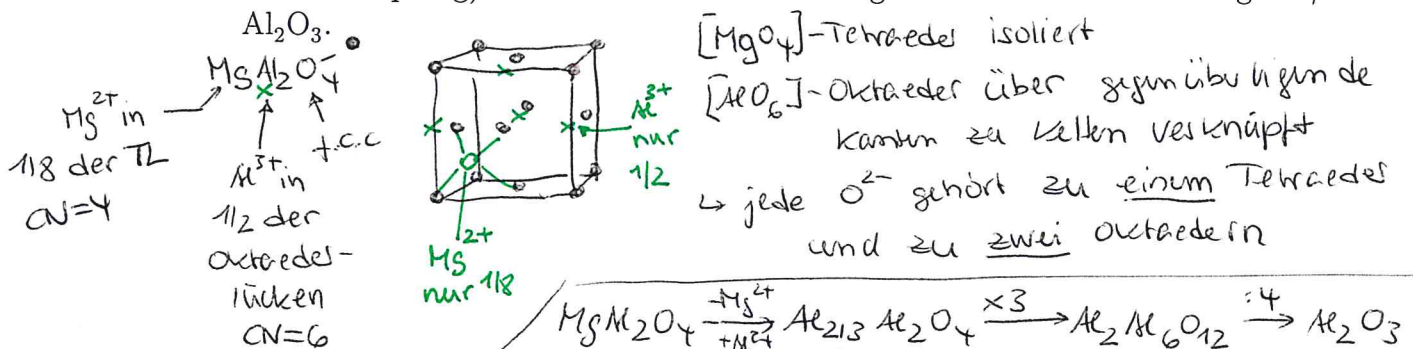 Al₂O₃.
MgAl₂O₄
Mg²⁺ in
1/8 der TL
CN=4
Al³⁺ in
1/2 der
Oktaeder-
lücken
CN=6
f.c.c
Al³⁺
nur
1/2
Mg²⁺
nur 1/8
[MgO₄]-Tetraeder isoliert
[AlO₆]-Oktaeder über gegenüberliegende
Kanten zu Ketten verknüpft
↳ jede O²⁻ gehört zu einem Tetraeder
und zu zwei Oktaedern
MgAl₂O₄ -Mg²⁺ +Al³⁺ → Al₂/₃ Al₂O₄ ×3 → Al₂Al₆O₁₂ :4 → Al₂O₃